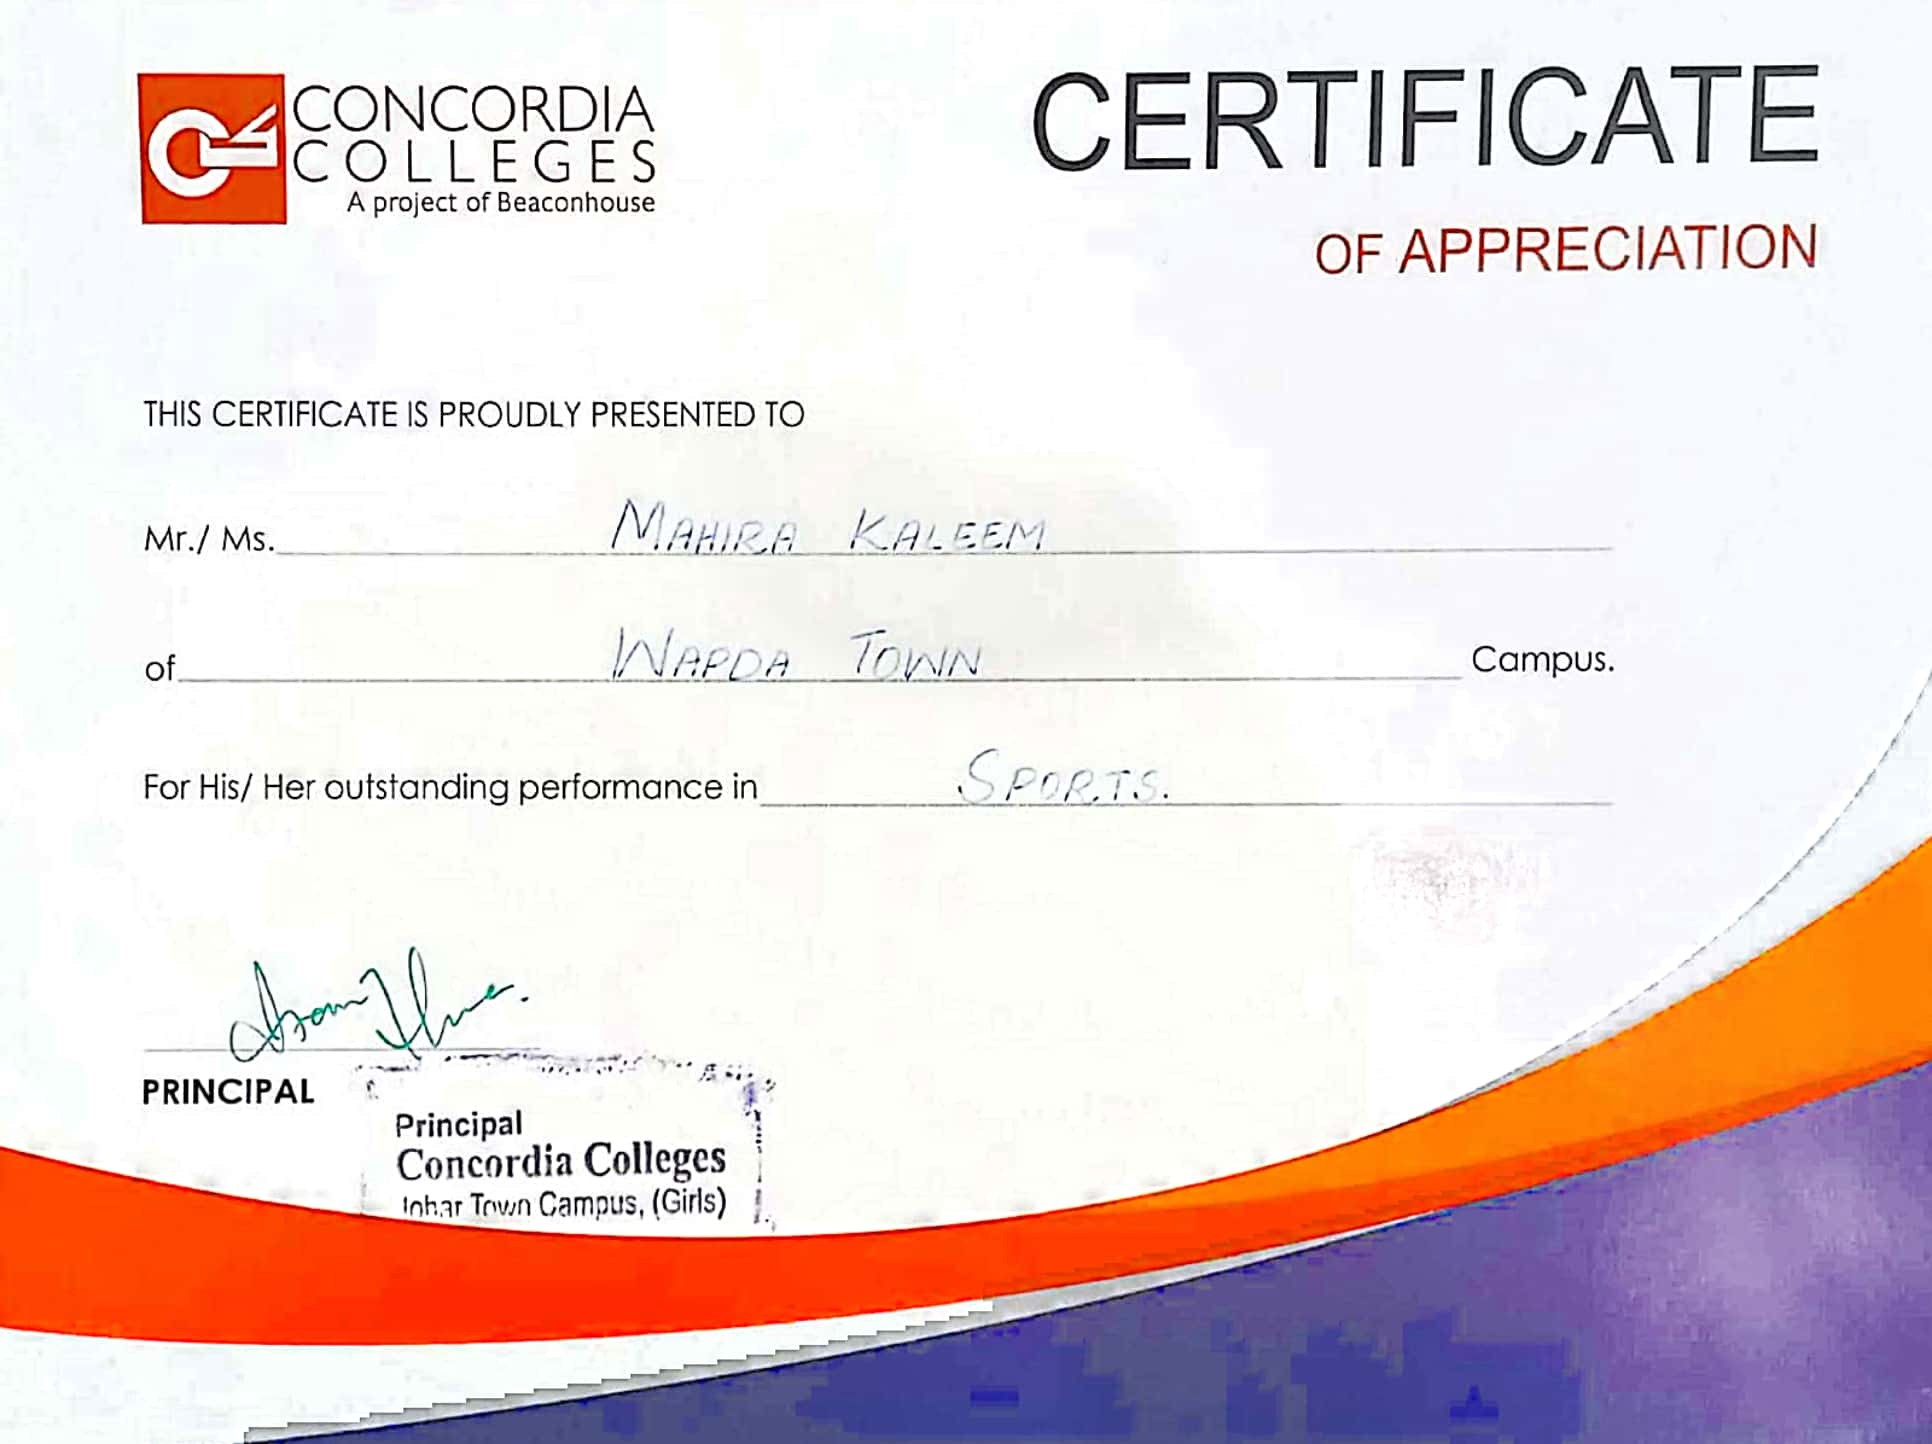 CONCORDIA
COLLEGES
A project of Beaconhouse
CERTIFICATE
OF APPRECIATION
THIS CERTIFICATE IS PROUDLY PRESENTED TO
Mr./ Ms. MAHIRA KALEEM
of WAPDA TOWN Campus.
For His/ Her outstanding performance in SPORTS.
PRINCIPAL
Principal
Concordia Colleges
Johar Town Campus, (Girls)